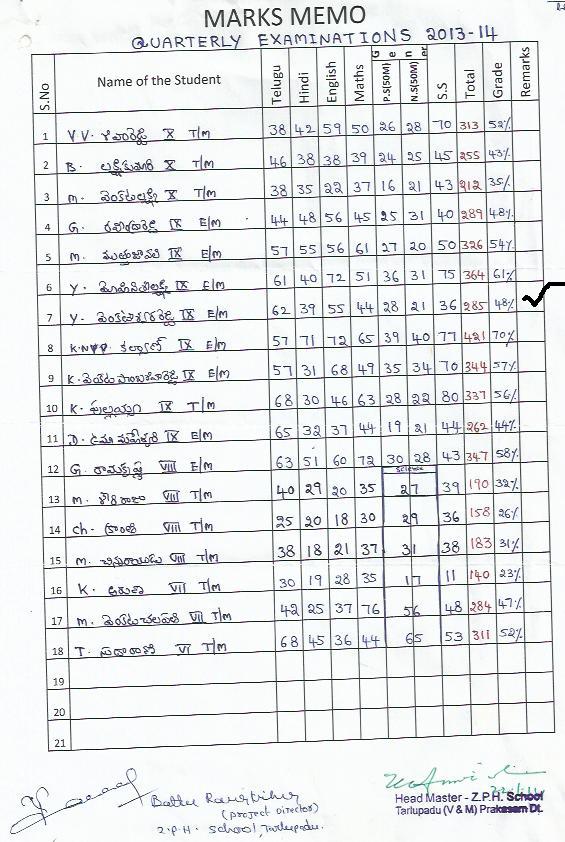 MARKS MEMO
QUARTERLY EXAMINATIONS 2013-14
S.No Name of the Student Telugu Hindi English Maths Gener P.S(50M) N.S(50M) S.S Total Grade Remarks
1 V.V. X T/M 38 42 59 50 26 28 70 313 52%
2 B. X T/M 46 38 38 39 24 25 45 255 43%
3 M. X T/M 38 35 22 37 16 21 43 212 35%
4 G. IX E/M 44 48 56 45 25 31 40 289 48%
5 M. IX E/M 57 55 56 61 27 20 50 326 54%
6 Y. IX E/M 61 40 72 51 36 31 75 364 61%
7 Y. IX E/M 62 39 55 44 28 21 36 285 48%
8 కళ్యాణ్ IX E/M 57 71 72 65 39 40 77 421 70%
9 K. IX E/M 57 31 68 49 35 34 70 344 57%
10 K. IX T/M 68 30 46 63 28 22 80 337 56%
11 D. IX E/M 65 32 37 44 19 21 44 262 44%
12 G. రామకృష్ణ VIII E/M 63 51 60 72 30 28 43 347 58%
Science
13 M. VIII T/M 40 29 20 35 27 39 190 32%
14 Ch. VIII T/M 25 20 18 30 29 36 158 26%
15 M. VIII T/M 38 18 21 37 31 38 183 31%
16 K. VII T/M 30 19 28 35 17 11 140 23%
17 M. VII T/M 42 25 37 76 56 48 284 47%
18 T. VI T/M 68 45 36 44 65 53 311 52%
19
20
21
(Project Director)
Z.P.H. School, Tarlupadu.
Head Master - Z.P.H. School
Tarlupadu (V & M) Prakasam Dt.